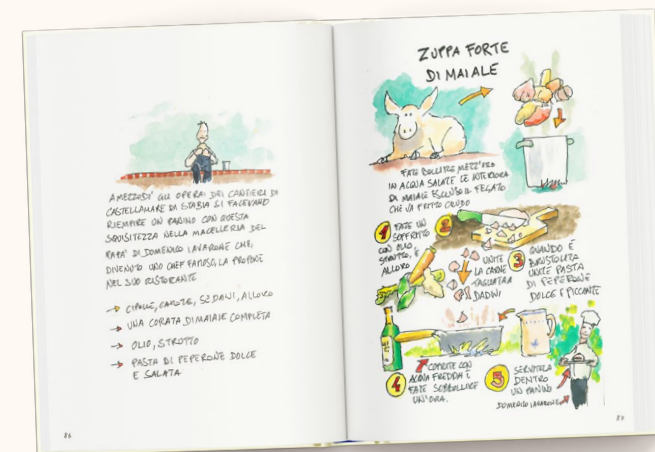 A MEZZODI' GLI OPERAI DEI CANTIERI DI
CASTELLAMARE DI STABIA SI FACEVANO
RIEMPIRE UN PANINO CON QUESTA
SQUISITEZZA NELLA MACELLERIA DEL
PAPA' DI DOMENICO IAVARONE CHE,
DIVENUTO UNO CHEF FAMOSO, LA PROPONE
NEL SUO RISTORANTE
CIPOLLE, CAROTE, SEDANI, ALLORO
UNA CORATA DI MAIALE COMPLETA
OLIO, STRUTTO
PASTA DI PEPERONE DOLCE
E SALATA
86
ZUPPA FORTE
DI MAIALE
FATE BOLLIRE MEZZ'ORA
IN ACQUA SALATE LE INTERIORA
DI MAIALE ESCLUSO IL FEGATO
CHE VA FRITTO CRUDO
1 FATE UN
SOFFRITTO
CON OLIO,
STRUTTO, E
ALLORO
2
UNITE
LA CARNE
TAGLIATA A
DADINI
3 QUANDO È
BRUSTOLITA
UNITE PASTA
DI PEPERONE
DOLCE E PICCANTE
4 COPRITE CON
ACQUA FREDDA E
FATE SOBBOLLIRE
UN'ORA.
5 SERVITELA
DENTRO
UN PANINO
DOMENICO IAVARONE
87